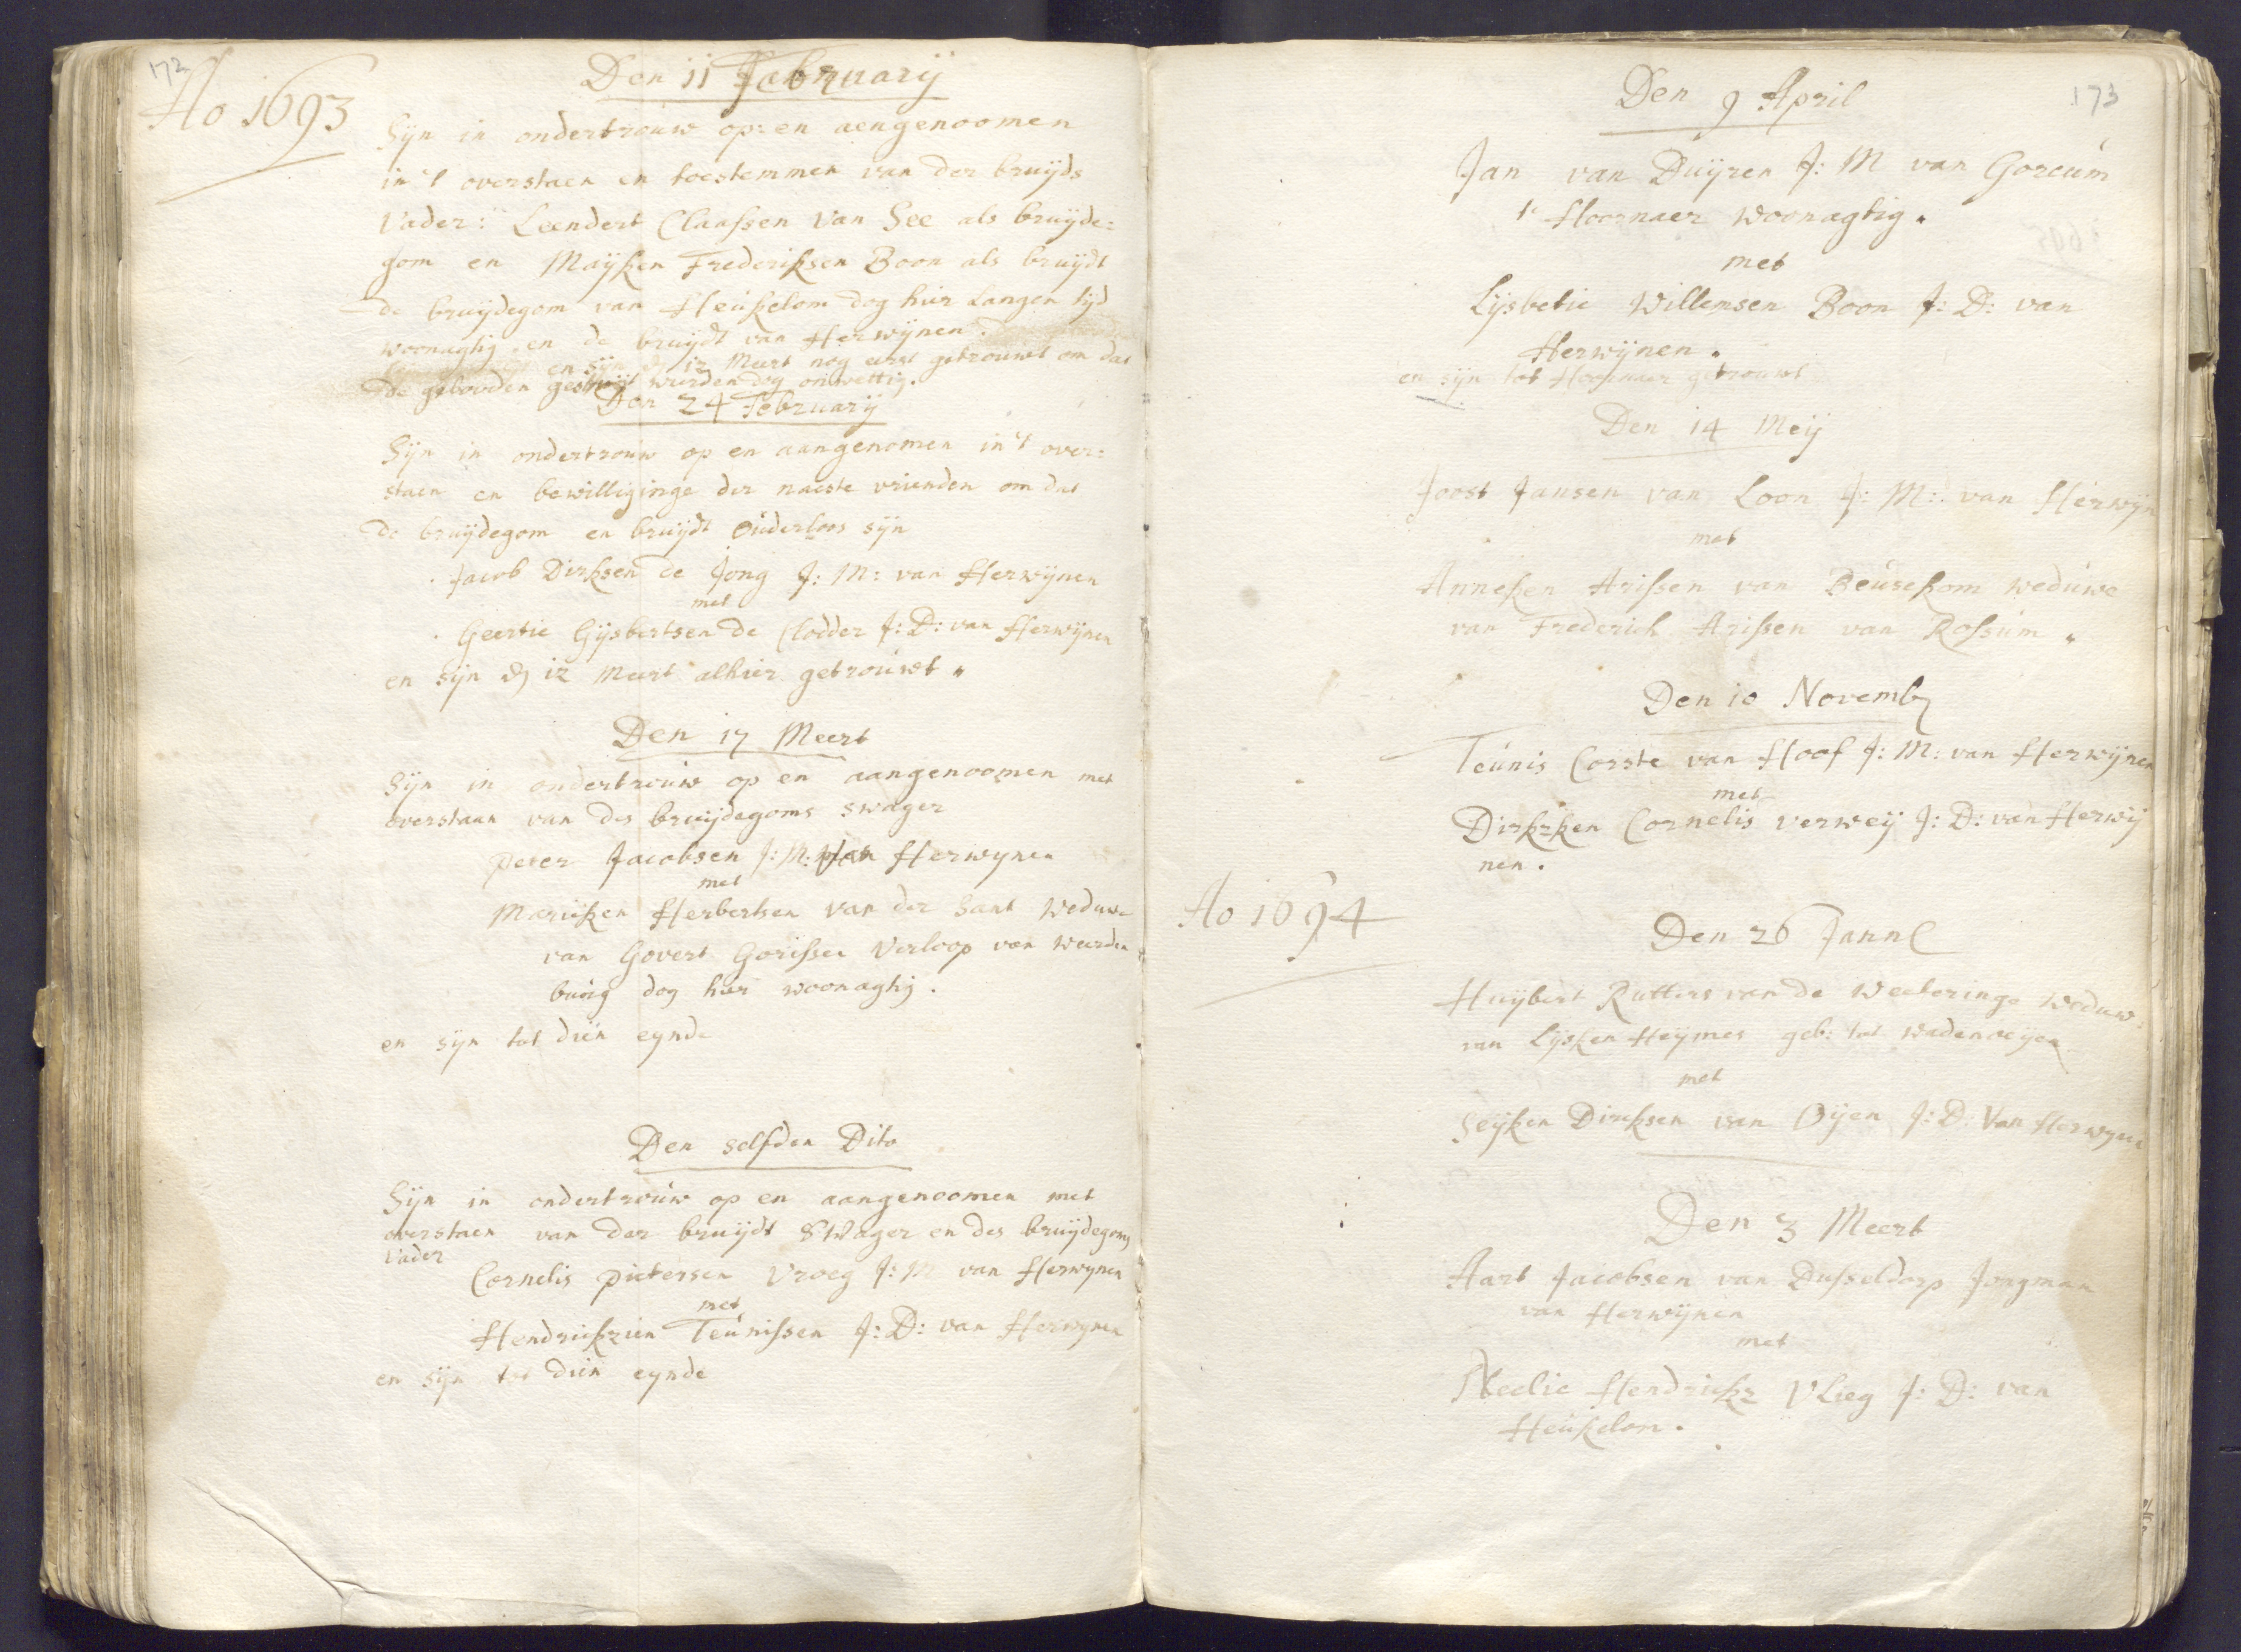 172
Ao 1693
Den 11 Februarij
Sijn in ondertrouw op: en aengenoomen
in 't overstaen en toestemmen van der bruijds
Vader: Leendert Claassen van See als bruijde=
gom en Maijken Frederiksen Boon als bruijdt
de bruijdegom van Heukelom dog hier langen tijd
woonagtig en de bruijdt van Herwijnen.
en sijn 12 Meert nog eerst getrouwt om dat
de gebooden gestuijt wierden dog onwettig.
Den 24 Februarij
Sijn in ondertrouw op en aangenomen in 't over=
staen en bewilliginge der naeste vrienden om dat
de bruijdegom en bruijdt Ouderloos sijn
Jacob Dirksen de Jong J: M: van Herwijnen
met
Geertie Gijsbertsen de Clodder J: D: van Herwijnen
en sijn dn 12 Meert alhier getrouwt
Den 17 Meert
Sijn in ondertrouw op en aangenoomen met
overstaan van des bruijdegoms swager
Peter Jacobsen J: M: van Herwynen
met
Marijken Herbertsen van der Sant Weduwe
van Govert Gorissen Verloop van Waarden
burg dog hier woonagtig.
en sijn tot dien eynde
Den selfden Dito
Sijn in ondertrouw op en aangenoomen met
overstaen van der bruijdt SWager en des bruijdegoms
Vader
Cornelis Pietersen Vroeg J: M van Herwynen
met
Hendrikzien Teunissen J: D: van Herwynen
en sijn tot dien eynde
173
Den 9 April
Jan van Duijren J: M van Gorcum
t' Hoornaer Woonagtig.
met
Lijsbetie Willemsen Boon J: D: van
Herwijnen.
en sijn tot Hoornaer getrouwt
Den 14 Meij
Joost Jansen van Loon J: M: van Herwijn
met
Anneken Arissen van Beusekom weduwe
van Frederich Arissen van Rossum
Den 10 Novemb
Teunis Corste van Hoof J: M: van Herwijnen
met
Dirkzken Cornelis verweij J: D: van Herwij
nen.
Ao 1694
Den 26 Jann
Huijbert Rutters van de Weeteringe Weduw=
van Lijsken Heijmes geb: tot Wadenoeijen
met
Seijken Dirksen van Oijen J: D: Van Herwyne
Den 3 Meert
Aart Jacobsen van Dusseldorp Jongman
van Herwijnen
met
Neelie Hendrikz Vlieg J: D: van
Heukelom.